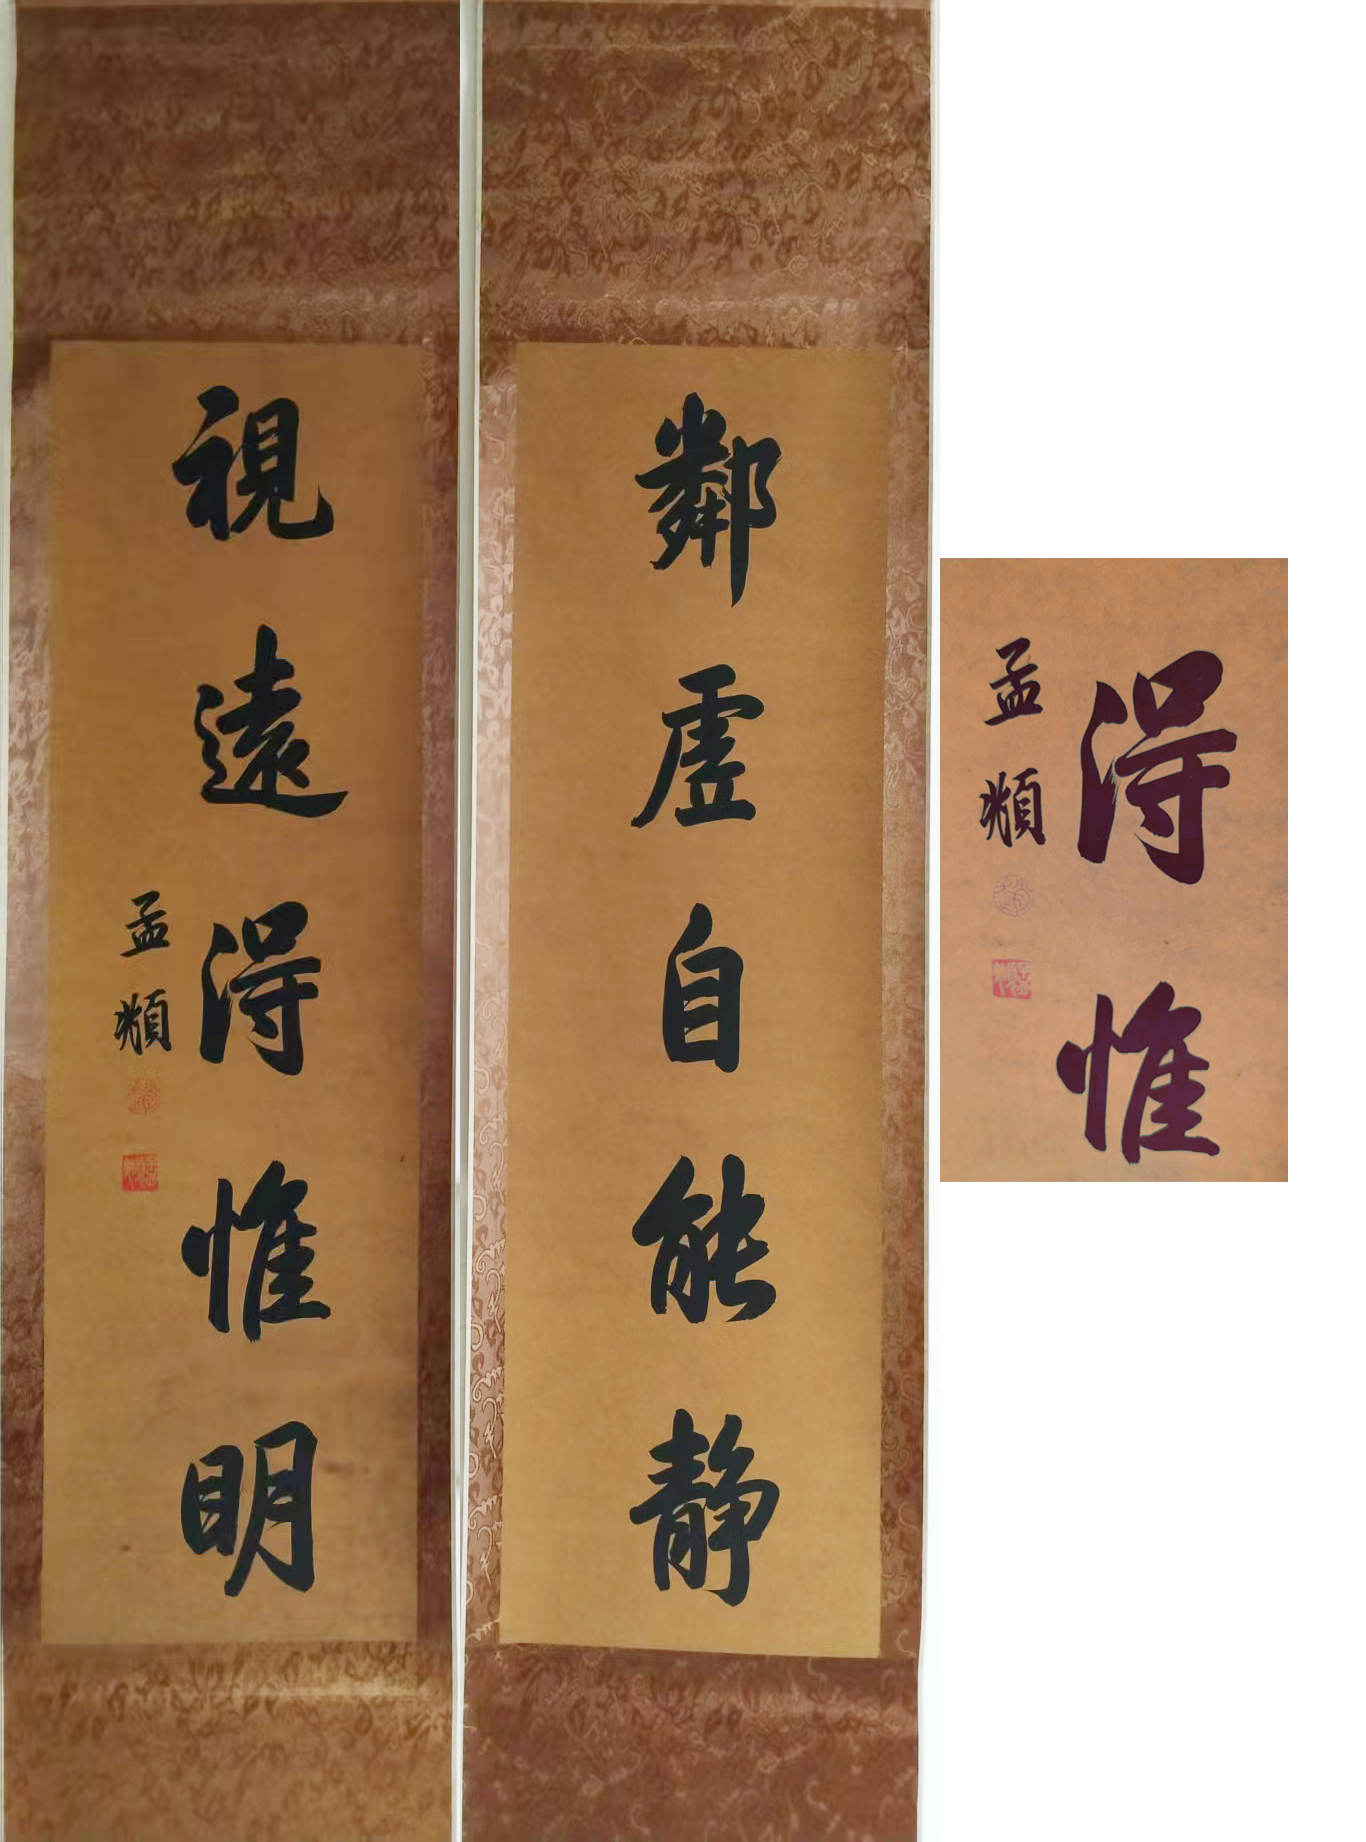 鄰虛自能静
視遠得惟明
孟頫
孟頫
得惟